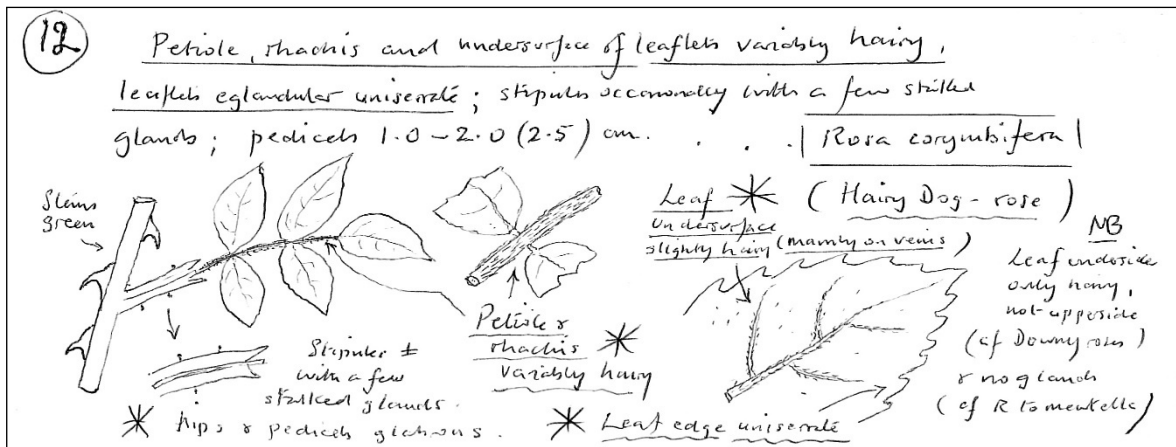 12
Petiole, rhachis and undersurface of leaflets variably hairy,
leaflets eglandular uniserrate; stipules occasionally with a few stalked
glands; pedicels 1.0 – 2.0 (2.5) cm. . . . | Rosa corymbifera |
(Hairy Dog-rose)
Stems
green
Leaf
undersurface
slightly hairy (mainly on veins)
NB
Leaf underside
only hairy,
not upperside
(cf Downy roses)
& no glands
(cf R tomentella)
Petiole &
rhachis
variably hairy
Stipules ±
with a few
stalked glands.
Hips & pedicels glabrous.
Leaf edge uniserrate